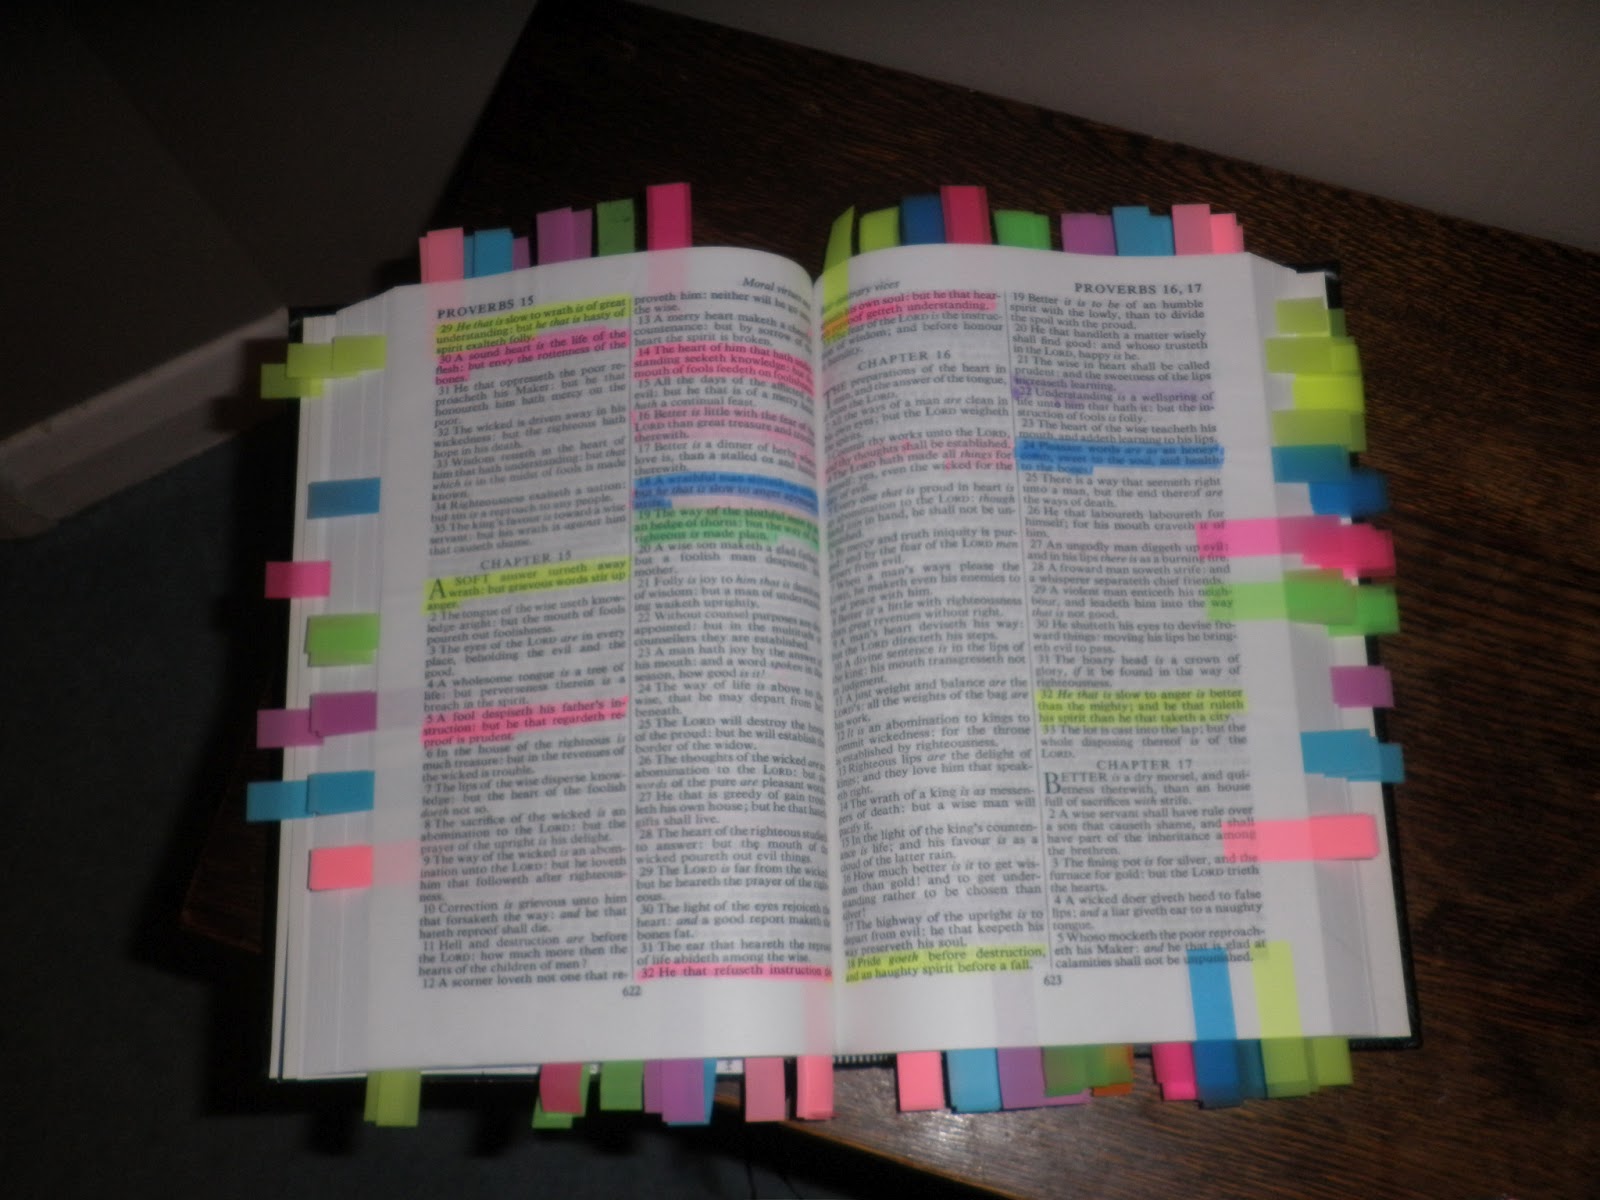 PROVERBS 15
29 He that is slow to wrath is of great
understanding: but he that is hasty of
spirit exalteth folly.
30 A sound heart is the life of the
flesh: but envy the rottenness of the
bones.
31 He that oppresseth the poor re-
proacheth his Maker: but he that
honoureth him hath mercy on the
poor.
32 The wicked is driven away in his
wickedness: but the righteous hath
hope in his death.
33 Wisdom resteth in the heart of
him that hath understanding: but that
which is in the midst of fools is made
known.
34 Righteousness exalteth a nation:
but sin is a reproach to any people.
35 The king's favour is toward a wise
servant: but his wrath is against him
that causeth shame.
CHAPTER 15
A SOFT answer turneth away
wrath: but grievous words stir up
anger.
2 The tongue of the wise useth know-
ledge aright: but the mouth of fools
poureth out foolishness.
3 The eyes of the LORD are in every
place, beholding the evil and the
good.
4 A wholesome tongue is a tree of
life: but perverseness therein is a
breach in the spirit.
5 A fool despiseth his father's in-
struction: but he that regardeth re-
proof is prudent.
6 In the house of the righteous is
much treasure: but in the revenues of
the wicked is trouble.
7 The lips of the wise disperse know-
ledge: but the heart of the foolish
doeth not so.
8 The sacrifice of the wicked is an
abomination to the LORD: but the
prayer of the upright is his delight.
9 The way of the wicked is an abom-
ination unto the LORD: but he loveth
him that followeth after righteous-
ness.
10 Correction is grievous unto him
that forsaketh the way: and he that
hateth reproof shall die.
11 Hell and destruction are before
the LORD: how much more then the
hearts of the children of men?
12 A scorner loveth not one that re-
622
Moral
proveth him: neither will he go
the wise.
13 A merry heart maketh a
countenance: but by sorrow of
heart the spirit is broken.
14 The heart of him that hath
standing seeketh knowledge:
mouth of fools feedeth on
15 All the days of the
evil: but he that is of a merry
hath a continual feast.
16 Better is little with the fear of
LORD than great treasure and
therewith.
17 Better is a dinner of herbs
love is, than a stalled ox and
therewith.
18 A wrathful man
but he that is slow to anger
strife.
19 The way of the slothful man
an hedge of thorns: but the way of
righteous is made plain.
20 A wise son maketh a glad
but a foolish man despiseth
mother.
21 Folly is joy to him that is
of wisdom: but a man of
ing walketh uprightly.
22 Without counsel purposes are
appointed: but in the multitude
counsellers they are established.
23 A man hath joy by the answer
his mouth: and a word spoken in
season, how good is it!
24 The way of life is above to
wise, that he may depart from
beneath.
25 The LORD will destroy the
of the proud: but he will establish
border of the widow.
26 The thoughts of the wicked are
abomination to the LORD: but
words of the pure are pleasant
27 He that is greedy of gain
leth his own house; but he that
gifts shall live.
28 The heart of the righteous
to answer: but the mouth of
wicked poureth out evil things.
29 The LORD is far from the
but he heareth the prayer of the
eous.
30 The light of the eyes rejoiceth
heart: and a good report maketh
bones fat.
31 The ear that heareth the
of life abideth among the wise.
32 He that refuseth instruction
contrary vices
his own soul: but he that hear-
reproof getteth understanding.
fear of the LORD is the instruc-
of wisdom; and before honour
CHAPTER 16
THE preparations of the heart in
man, and the answer of the tongue,
from the LORD.
the ways of a man are clean in
own eyes; but the LORD weigheth
spirits.
thy works unto the LORD,
thy thoughts shall be established.
LORD hath made all things for
yea, even the wicked for the
of evil.
one that is proud in heart is
abomination to the LORD: though
join in hand, he shall not be un-
mercy and truth iniquity is pur-
and by the fear of the LORD men
from evil.
When a man's ways please the
he maketh even his enemies to
at peace with him.
Better is a little with righteousness
than great revenues without right.
A man's heart deviseth his way:
but the LORD directeth his steps.
A divine sentence is in the lips of
the king: his mouth transgresseth not
in judgment.
11 A just weight and balance are the
LORD's: all the weights of the bag are
his work.
12 It is an abomination to kings to
commit wickedness: for the throne
is established by righteousness.
13 Righteous lips are the delight of
kings; and they love him that speak-
eth right.
14 The wrath of a king is as messen-
gers of death: but a wise man will
pacify it.
15 In the light of the king's counten-
ance is life; and his favour is as a
cloud of the latter rain.
16 How much better is it to get wis-
dom than gold! and to get under-
standing rather to be chosen than
silver!
17 The highway of the upright is to
depart from evil: he that keepeth his
way preserveth his soul.
18 Pride goeth before destruction,
and an haughty spirit before a fall.
PROVERBS 16, 17
19 Better it is to be of an humble
spirit with the lowly, than to divide
the spoil with the proud.
20 He that handleth a matter wisely
shall find good: and whoso trusteth
in the LORD, happy is he.
21 The wise in heart shall be called
prudent: and the sweetness of the lips
increaseth learning.
22 Understanding is a wellspring of
life unto him that hath it: but the in-
struction of fools is folly.
23 The heart of the wise teacheth his
mouth, and addeth learning to his lips.
24 Pleasant words are as an honey-
comb, sweet to the soul, and health
to the bones.
25 There is a way that seemeth right
unto a man, but the end thereof are
the ways of death.
26 He that laboureth laboureth for
himself; for his mouth craveth it of
him.
27 An ungodly man diggeth up evil:
and in his lips there is as a burning fire.
28 A froward man soweth strife: and
a whisperer separateth chief friends.
29 A violent man enticeth his neigh-
bour, and leadeth him into the way
that is not good.
30 He shutteth his eyes to devise fro-
ward things: moving his lips he bring-
eth evil to pass.
31 The hoary head is a crown of
glory, if it be found in the way of
righteousness.
32 He that is slow to anger is better
than the mighty; and he that ruleth
his spirit than he that taketh a city.
33 The lot is cast into the lap; but the
whole disposing thereof is of the
LORD.
CHAPTER 17
BETTER is a dry morsel, and qui-
etness therewith, than an house
full of sacrifices with strife.
2 A wise servant shall have rule over
a son that causeth shame, and shall
have part of the inheritance among
the brethren.
3 The fining pot is for silver, and the
furnace for gold: but the LORD trieth
the hearts.
4 A wicked doer giveth heed to false
lips; and a liar giveth ear to a naughty
tongue.
5 Whoso mocketh the poor reproach-
eth his Maker: and he that is glad at
calamities shall not be unpunished.
623